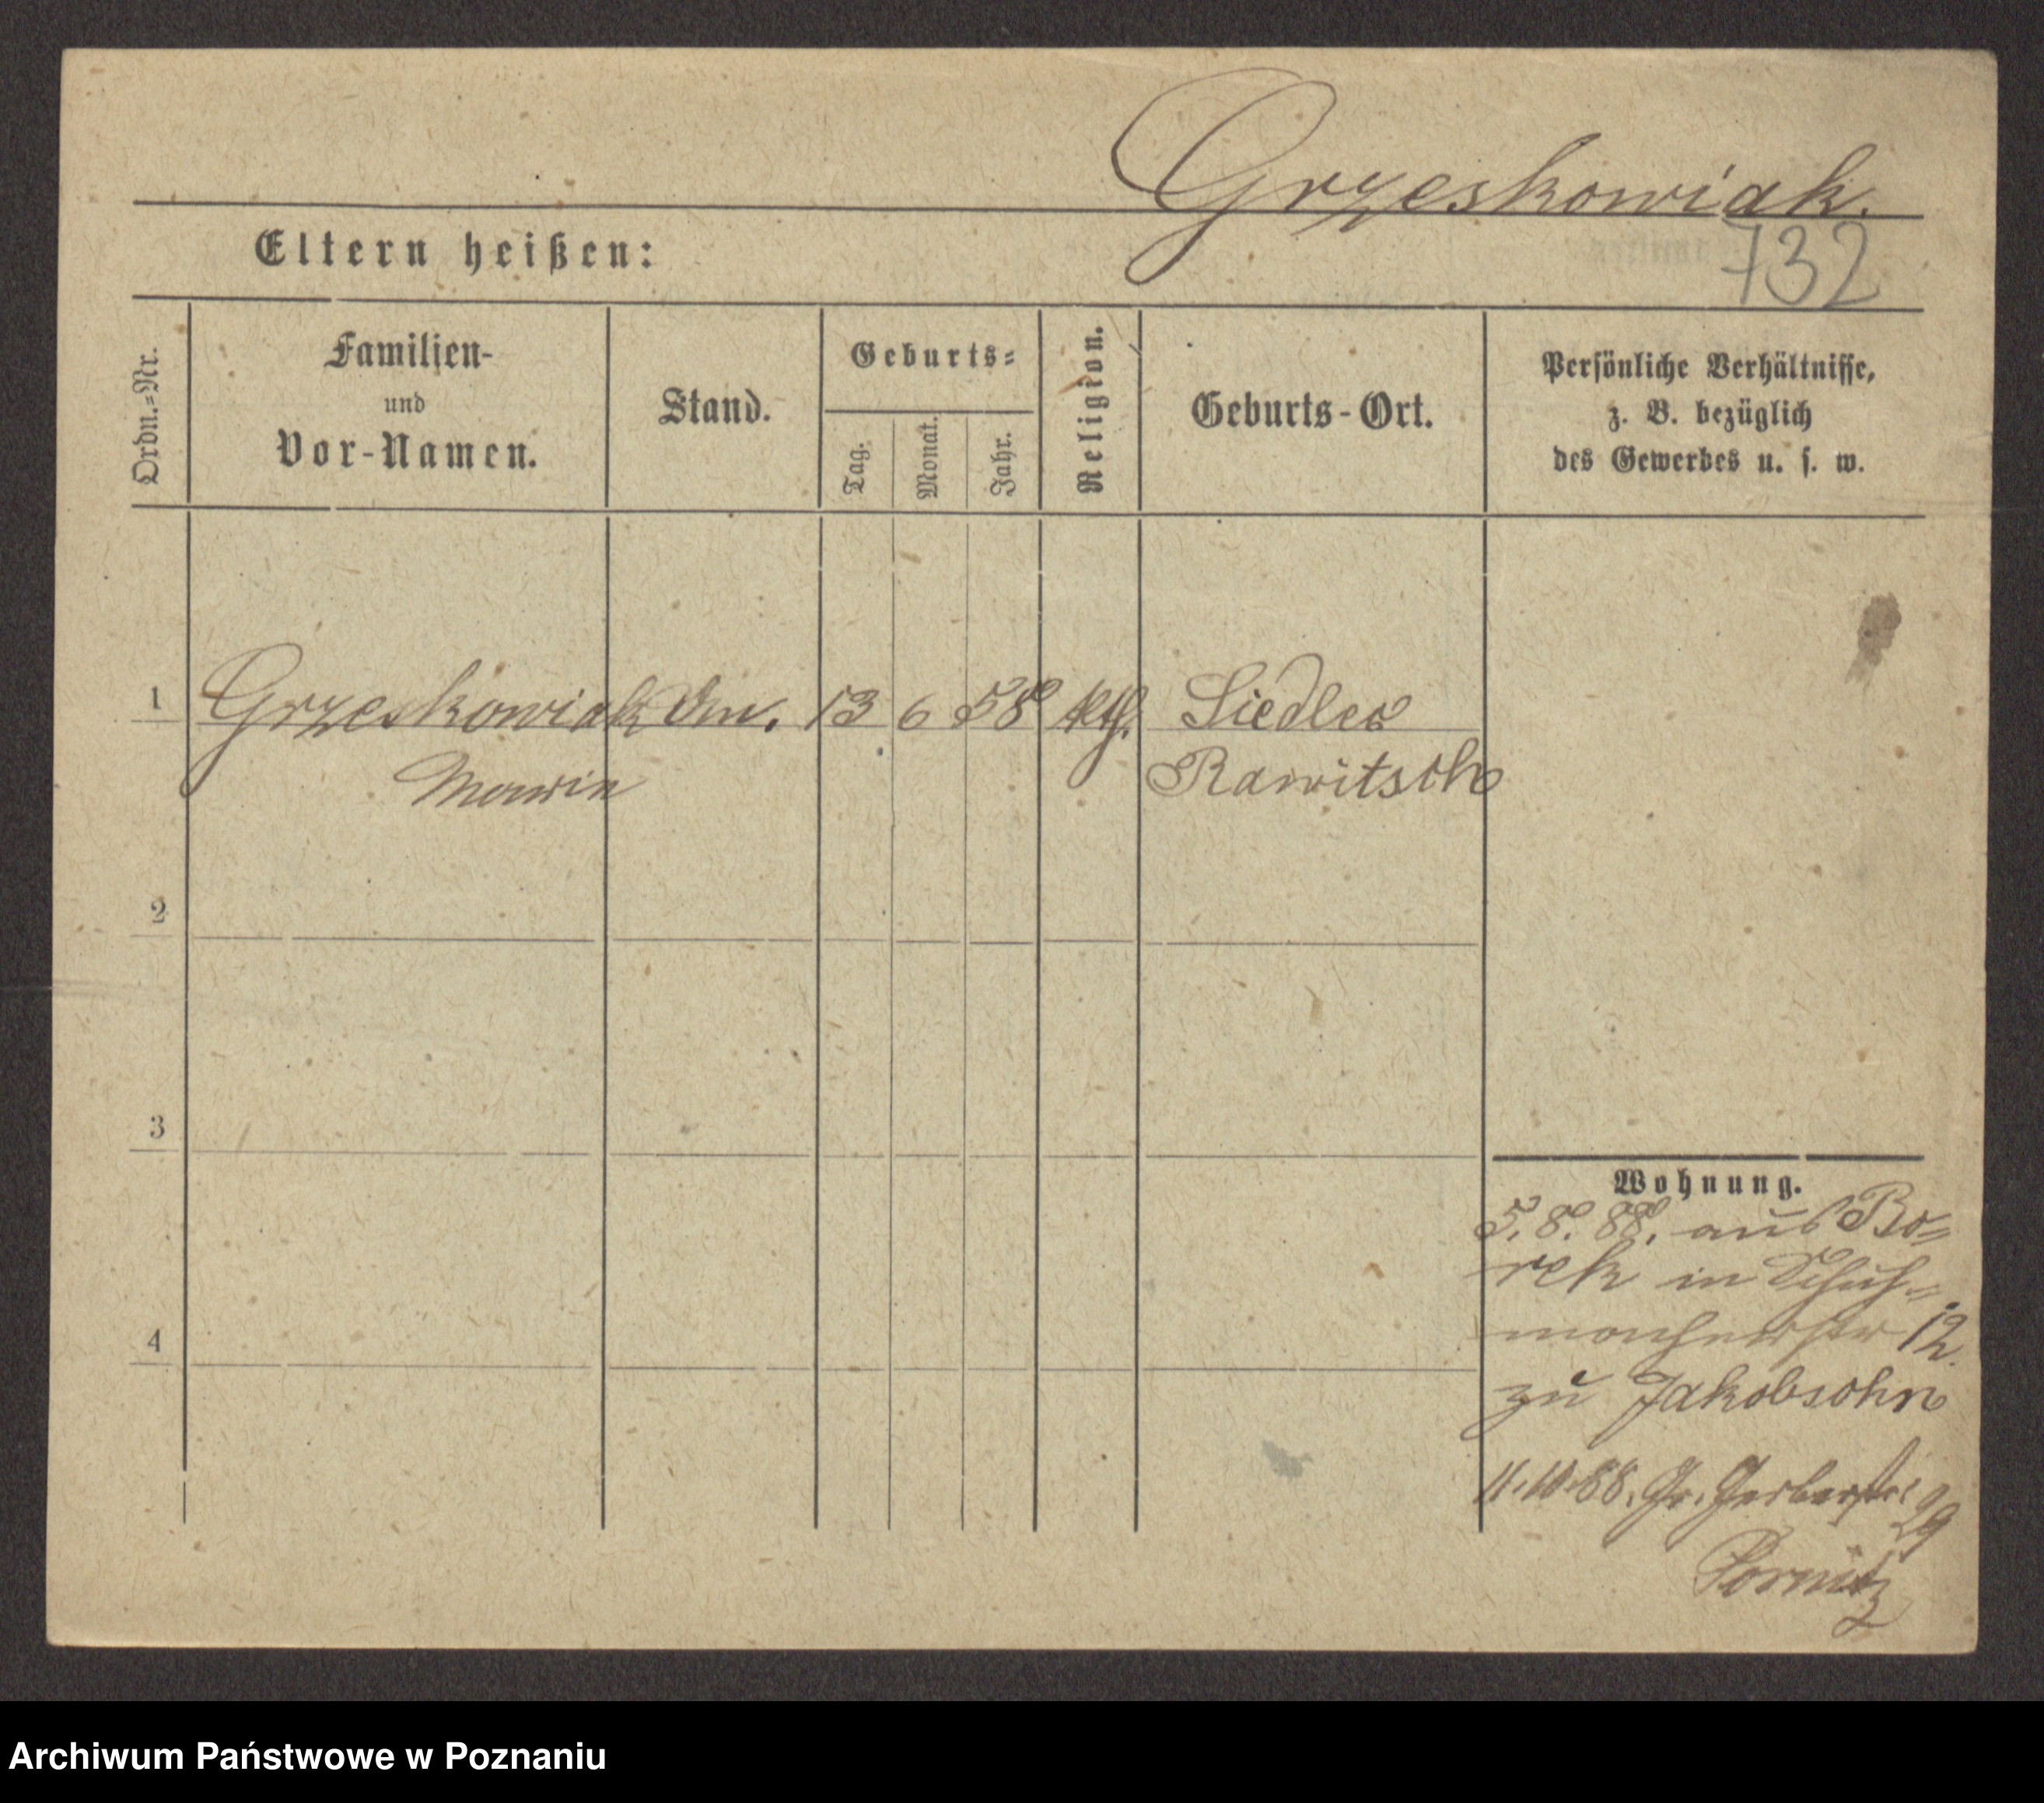 Grzeskowiak.
732
Eltern heißen:
Ordn.=Nr.
Familien-
und
Vor-Namen.
Stand.
Geburts=
Tag.
Monat.
Jahr.
Religion.
Geburts-Ort.
Persönliche Verhältnisse,
z. B. bezüglich
des Gewerbes u. s. w.
1 Grzeskowiak 13 6 58 kth. Siedlec
Rawitsch
2
3
4
Wohnung.
5. 8. 88. aus Bo=
rek in Schuh=
macherstr 12.
zu Jakobsohn
11.10.88. Gr. Gerberstr.
29
Archiwum Państwowe w Poznaniu